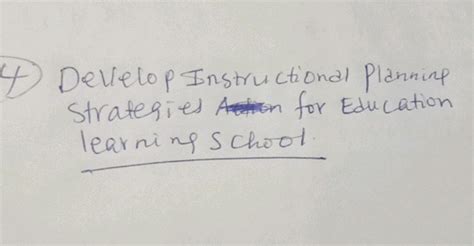 4 Develop Instructional Planning
Strategies for Education
learning School.